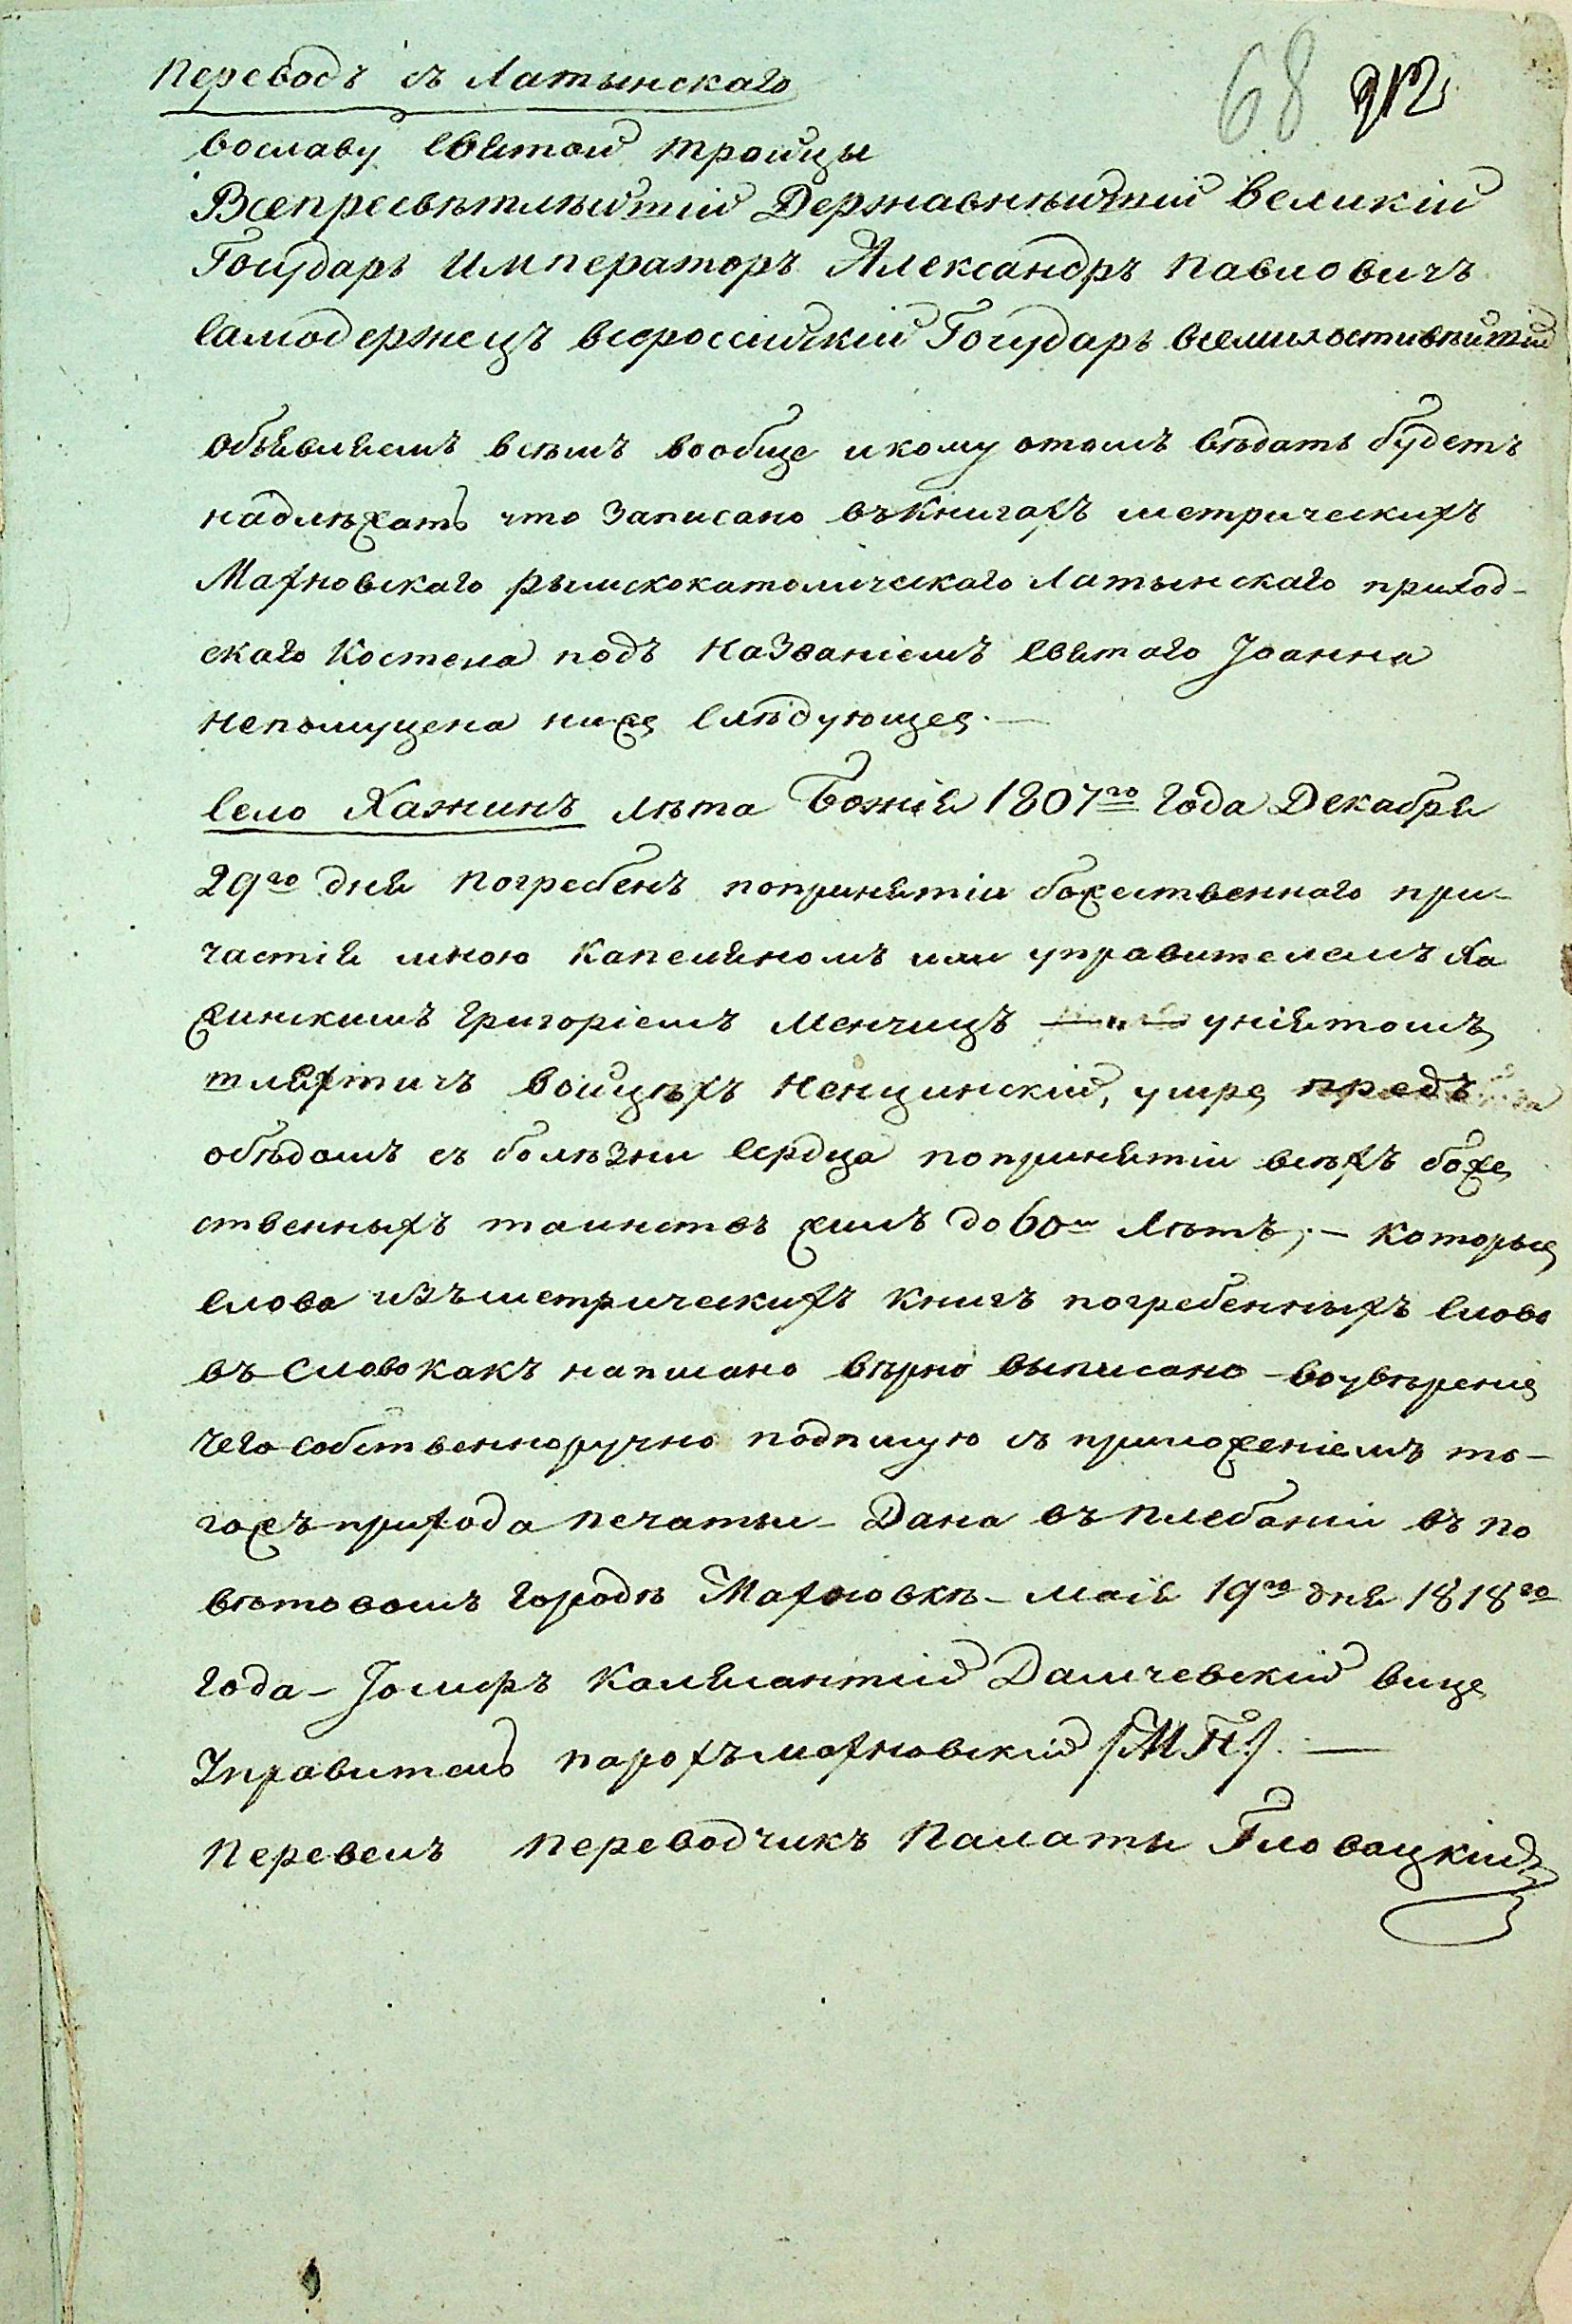 Переводъ съ Латынскаго
68 912
вославу святой троицы
Всепресвѣтлѣйшій Державнѣйшій Великій
Государь Императоръ Александръ Павловичъ
Самодержецъ всероссійскій Государь всемилостивѣйшій
Объявляемъ всѣмъ вообще икому отомъ вѣдать будетъ
надлѣжать что записано въкнигахъ метрическихъ
Махновскаго рымскокатолическаго Латынскаго приход-
скаго Костела подъ названіемъ святаго Іоанна
Непомуцена ниже слѣдующее. —
Село Хажинъ лѣта Божія 1807го года Декабря
29го дня погребенъ попринятіи божественнаго при-
частія мною Капеляномъ или управителемъ Ха
жинскимъ Григоріемъ Менчицъ уніятомъ
шляхтичъ Войцѣхъ Ненцинскій, умре предъ
обѣдомъ съ болѣзни сердца попринятіи всѣхъ боже
ственныхъ таинствъ жилъ до 60и лѣтъ; — которые
слова изъметрическихъ книгъ погребенныхъ слово
въ слово какъ написано вѣрно выписано — воувѣреніе
чего собственноручно подпишую съ приложеніемъ то-
гожъ прихода печаты — Дана въ плебаніи въ по
вѣтовомъ городѣ Махновкѣ — маія 19го дня 1818го
года — Іосифъ Калясантій Дашчевскій вице
Управитель парохъ махновскій /М.П./. —
Перевелъ переводчикъ Палаты Гловацкій